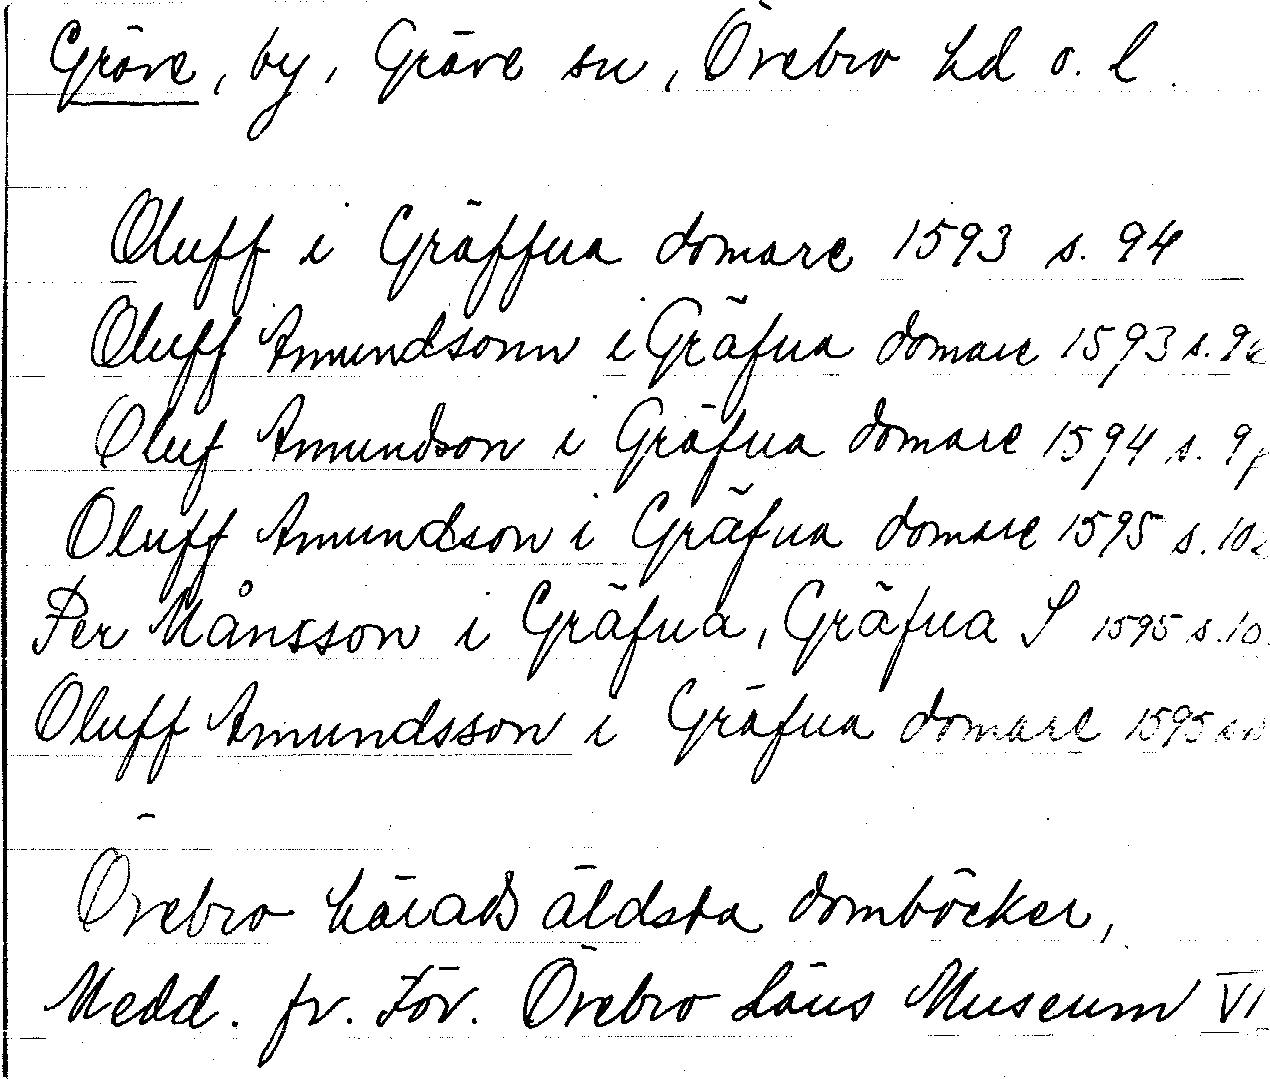 Gräve, by, Gräve sn, Örebro hd o. l.
Oluff i Gräffua domare 1593 s. 94
Oluff Amundsonn i Gräfua domare 1593 s.
Oluf Amundson i Gräfua domare 1594 s.
Oluff Amundson i Gräfua domare 1595 s. 10
Per Månsson i Gräfua, Gräfua S 1595 s. 10
Oluff Amundsson i Gräfua domare 1595
Örebro härads äldsta domböcker,
Medd. fr. För. Örebro Läns Museum VI